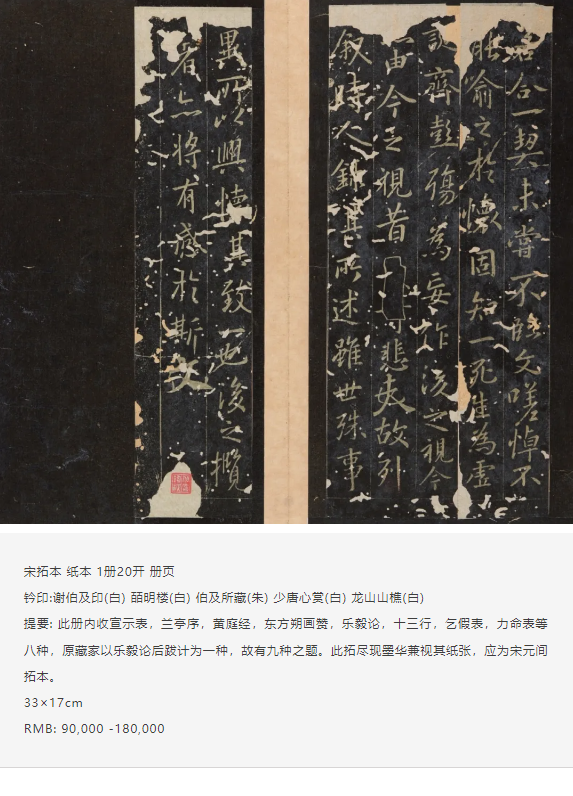 若合一契未嘗不臨文嗟悼不
能喻之於懷固知一死生為虛
誕齊彭殤為妄作後之視今
亦由今之視昔悲夫故列
叙時人録其所述雖世殊事
異所以興懷其致一也後之攬
者亦將有感於斯文
宋拓本 纸本 1册20开 册页
钤印:谢伯及印(白) 皕明楼(白) 伯及所藏(朱) 少唐心赏(白) 龙山山樵(白)
提要: 此册内收宣示表，兰亭序，黄庭经，东方朔画赞，乐毅论，十三行，乞假表，力命表等
八种，原藏家以乐毅论后跋计为一种，故有九种之题。此拓尽现墨华兼视其纸张，应为宋元间
拓本。
33×17cm
RMB: 90,000 -180,000